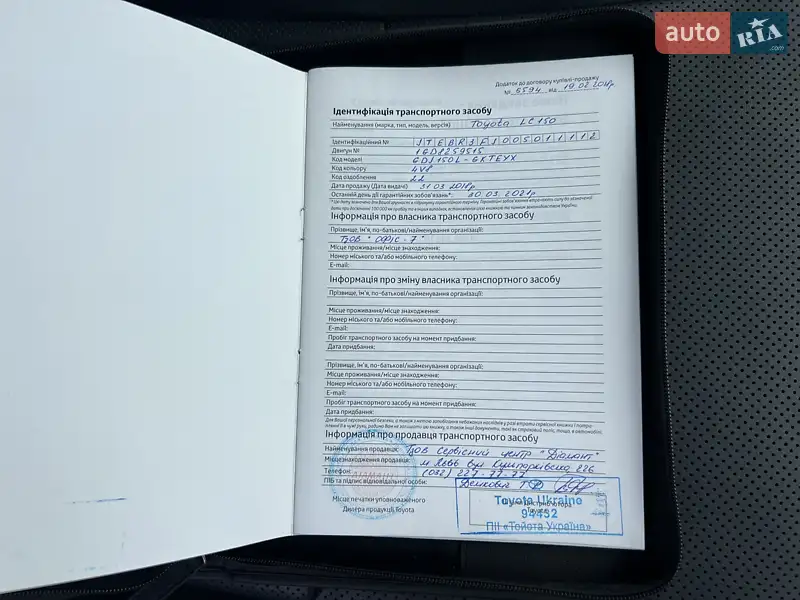 auto RIA .com
Додаток до договору купівлі-продажу
№ 5594 від 19.02.2018р
Ідентифікація транспортного засобу
Найменування (марка, тип, модель, версія) Toyota LC 150
Ідентифікаційний № JTEBR3FJ005011112
Двигун № 1GD8259515
Код моделі GDJ150L-GKTEYX
Код кольору 4V8
Код оздоблення 22
Дата продажу (Дата видачі) 31.03.2018р
Останній день дії гарантійних зобов'язань*: 30.03.2021р
Інформація про власника транспортного засобу
Прізвище, ім'я, по-батькові/найменування організації:
ТзОВ "Офіс-7"
Місце проживання/місце знаходження:
Номер міського та/або мобільного телефону:
E-mail:
Інформація про зміну власника транспортного засобу
Прізвище, ім'я, по-батькові/найменування організації:
Місце проживання/місце знаходження:
Номер міського та/або мобільного телефону:
E-mail:
Пробіг транспортного засобу на момент придбання:
Дата придбання:
Прізвище, ім'я, по-батькові/найменування організації:
Місце проживання/місце знаходження:
Номер міського та/або мобільного телефону:
E-mail:
Пробіг транспортного засобу на момент придбання:
Дата придбання:
Інформація про продавця транспортного засобу
Найменування продавця: ТзОВ Сервісний центр "Діамант"
Місцезнаходження продавця: м Львів вул Кульпарківська 226
Телефон: (032) 227-77-77
ПІБ та підпис відповідальної особи:
Місце печатки уповноваженого
Дилера продукції Toyota
Toyota Ukraine
94432
ПІІ «Тойота Україна»